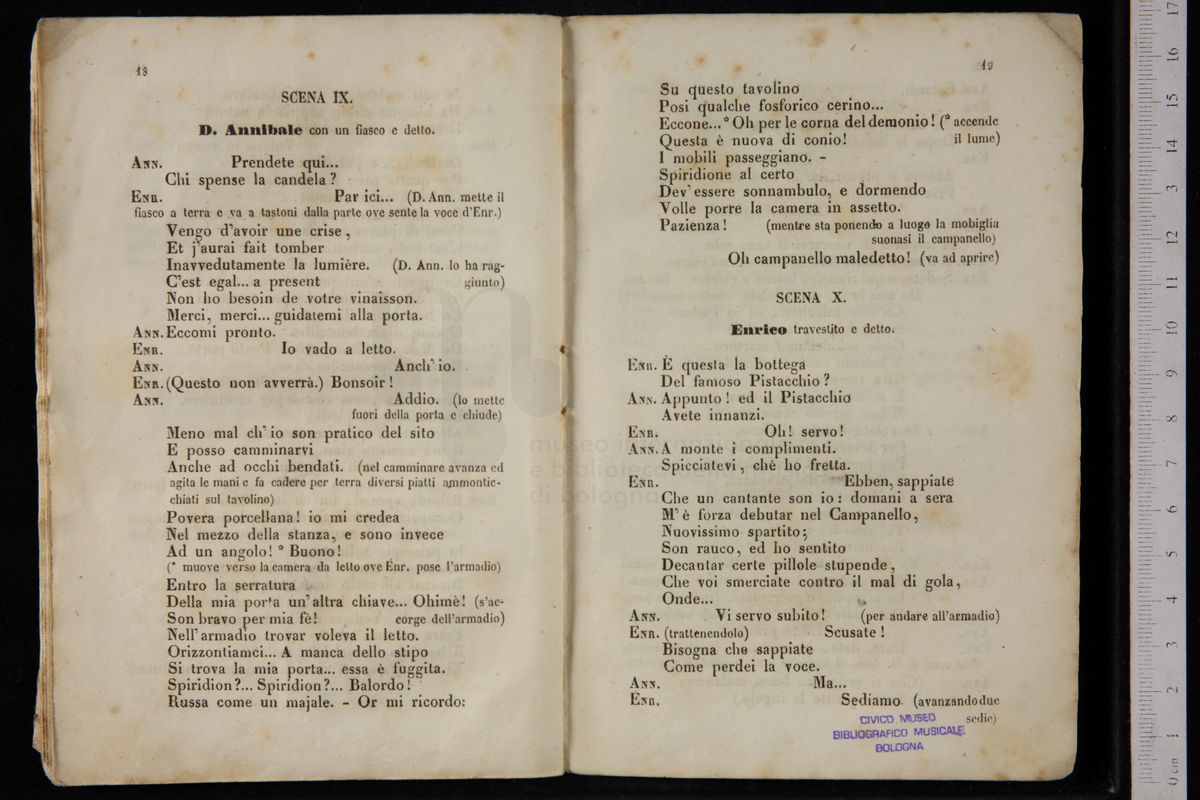 18
SCENA IX.
D. Annibale con un fiasco e detto.
Ann. Prendete qui...
Chi spense la candela?
Enr. Par ici... (D. Ann. mette il
fiasco a terra e va a tastoni dalla parte ove sente la voce d'Enr.)
Vengo d'avoir une crise,
Et j'aurai fait tomber
Inavvedutamente la lumière. (D. Ann. lo ha rag-
C'est egal... a present giunto)
Non ho besoin de votre vinaisson.
Merci, merci... guidatemi alla porta.
Ann. Eccomi pronto.
Enr. Io vado a letto.
Ann. Anch' io.
Enr. (Questo non avverrà.) Bonsoir!
Ann. Addio. (lo mette
fuori della porta e chiude)
Meno mal ch' io son pratico del sito
E posso camminarvi
Anche ad occhi bendati. (nel camminare avanza ed
agita le mani e fa cadere per terra diversi piatti ammontic-
chiati sul tavolino)
Povera porcellana! io mi credea
Nel mezzo della stanza, e sono invece
Ad un angolo! * Buono!
(* muove verso la camera da letto ove Enr. pose l'armadio)
Entro la serratura
Della mia porta un' altra chiave... Ohimè! (s'ac-
Son bravo per mia fè! corge dell'armadio)
Nell' armadio trovar voleva il letto.
Orizzontiamci... A manca dello stipo
Si trova la mia porta... essa è fuggita.
Spiridion?... Spiridion?... Balordo!
Russa come un majale. - Or mi ricordo:
19
Su questo tavolino
Posi qualche fosforico cerino...
Eccone... * Oh per le corna del demonio! (* accende
Questa è nuova di conio! il lume)
I mobili passeggiano. -
Spiridione al certo
Dev' essere sonnambulo, e dormendo
Volle porre la camera in assetto.
Pazienza! (mentre sta ponendo a luogo la mobiglia
suonasi il campanello)
Oh campanello maledetto! (va ad aprire)
SCENA X.
Enrico travestito e detto.
Enr. È questa la bottega
Del famoso Pistacchio?
Ann. Appunto! ed il Pistacchio
Avete innanzi.
Enr. Oh! servo!
Ann. A monte i complimenti.
Spicciatevi, chè ho fretta.
Enr. Ebben, sappiate
Che un cantante son io: domani a sera
M' è forza debutar nel Campanello,
Nuovissimo spartito;
Son rauco, ed ho sentito
Decantar certe pillole stupende,
Che voi smerciate contro il mal di gola,
Onde...
Ann. Vi servo subito! (per andare all'armadio)
Enr. (trattenendolo) Scusate!
Bisogna che sappiate
Come perdei la voce.
Ann. Ma...
Enr. Sediamo (avanzando due
sedie)
CIVICO MUSEO
BIBLIOGRAFICO MUSICALE
BOLOGNA
0 cm 1 2 3 4 5 6 7 8 9 10 11 12 13 14 15 16 17